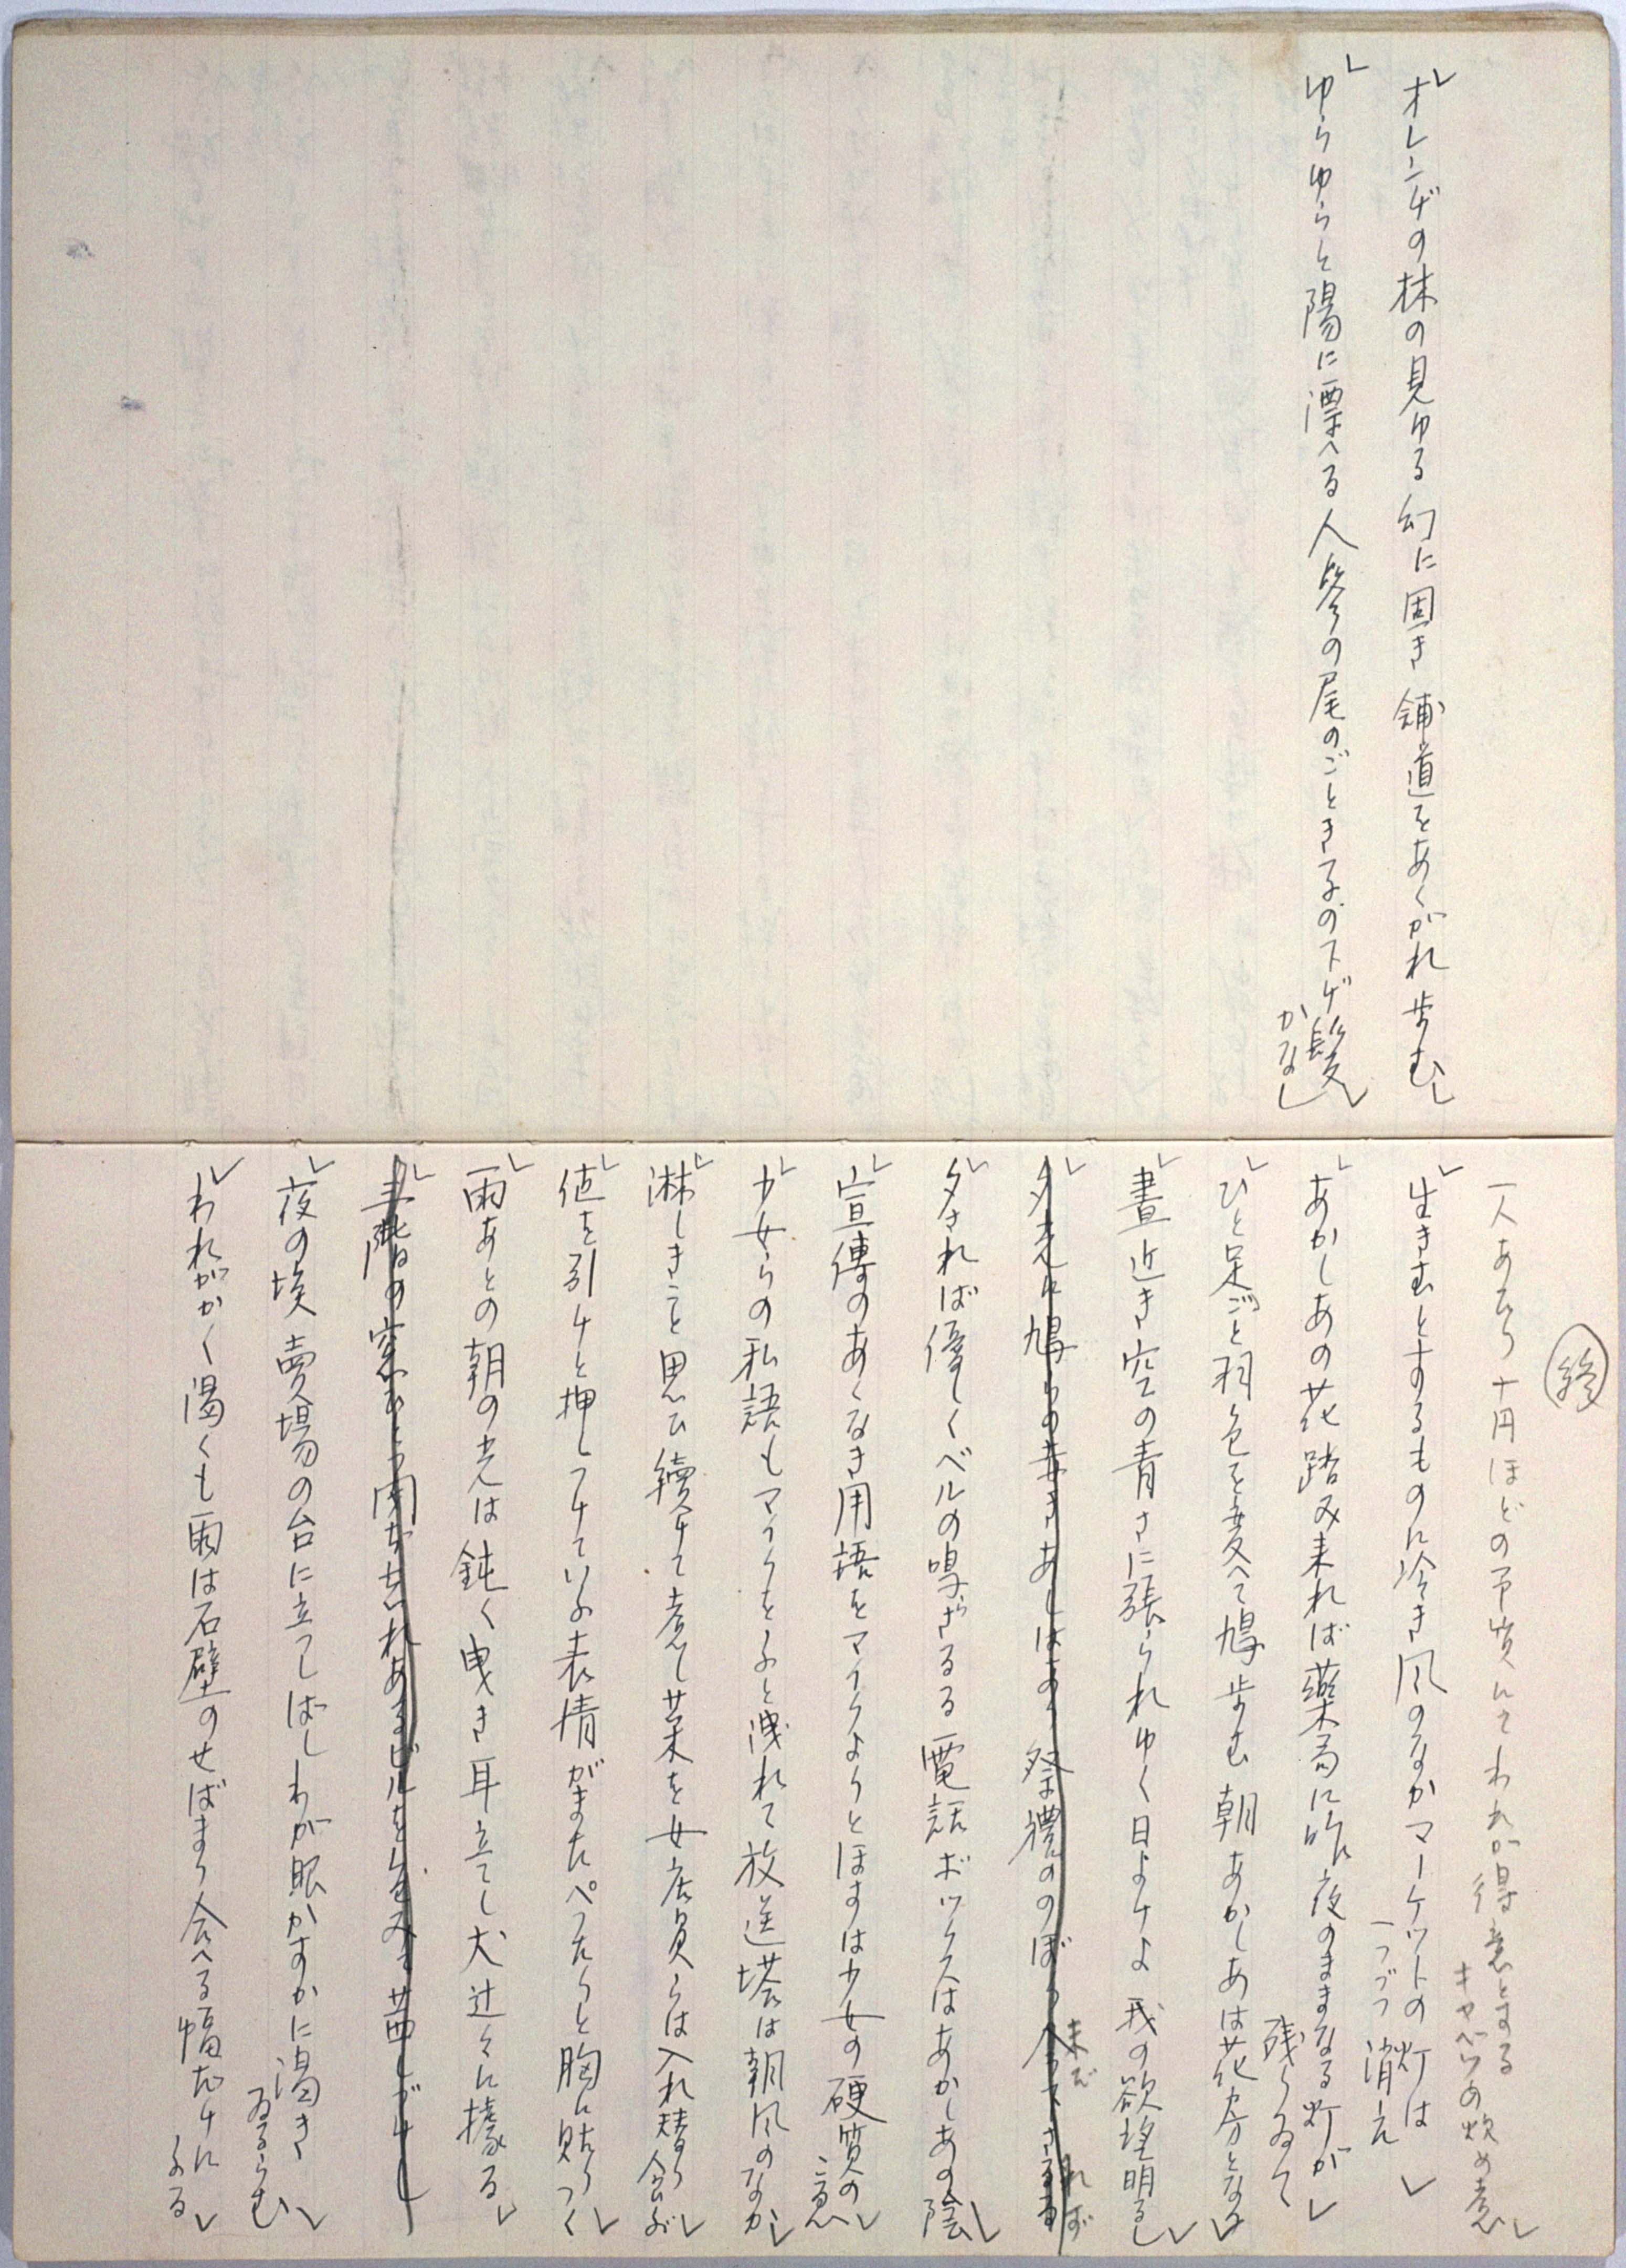 オレンヂの林の見ゆる幻に固き舗道をあくがれ歩む
ゆらゆらと陽に漂へる人群の尾のごとき子のスゲ髪
かなし
終
一人あたり十円ほどの予算にてわれが得意とする
キャベツの炊め煮
生きむとするものに冷き風のなかマーケットの灯は
一つづつ消え
あかしあの花踏み来れば薬局に昨夜のままなる灯が
残りゐて
ひと足ごと羽色を変へて鳩歩む朝あかしあは花房となる
晝近き空の青さに張られゆく日よけよ我の欲望明るし
夕さればしくベルの鳴らざる電話ボックスはあかしあの陰
宣傳のあくなき用語をマイクよりとほすは少女の硬質の
こゑ
少女らの私語もマイクをふと洩れて放送塔は朝風のなか
淋しきこと思ひ續けて煮し菜を女店員らは入れ替り食ぶ
値を引けと押しつけていふ表情がまたぺつたりと胸に貼りつく
雨あとの朝の光は鈍く曳き耳立てし犬辻々に據る
夜の埃賣場の台に立つしばしわが眼かすかに渇き
ゐるらむ
われがかく渇くも雨は石壁のせばまり合へる幅だけに
ふる